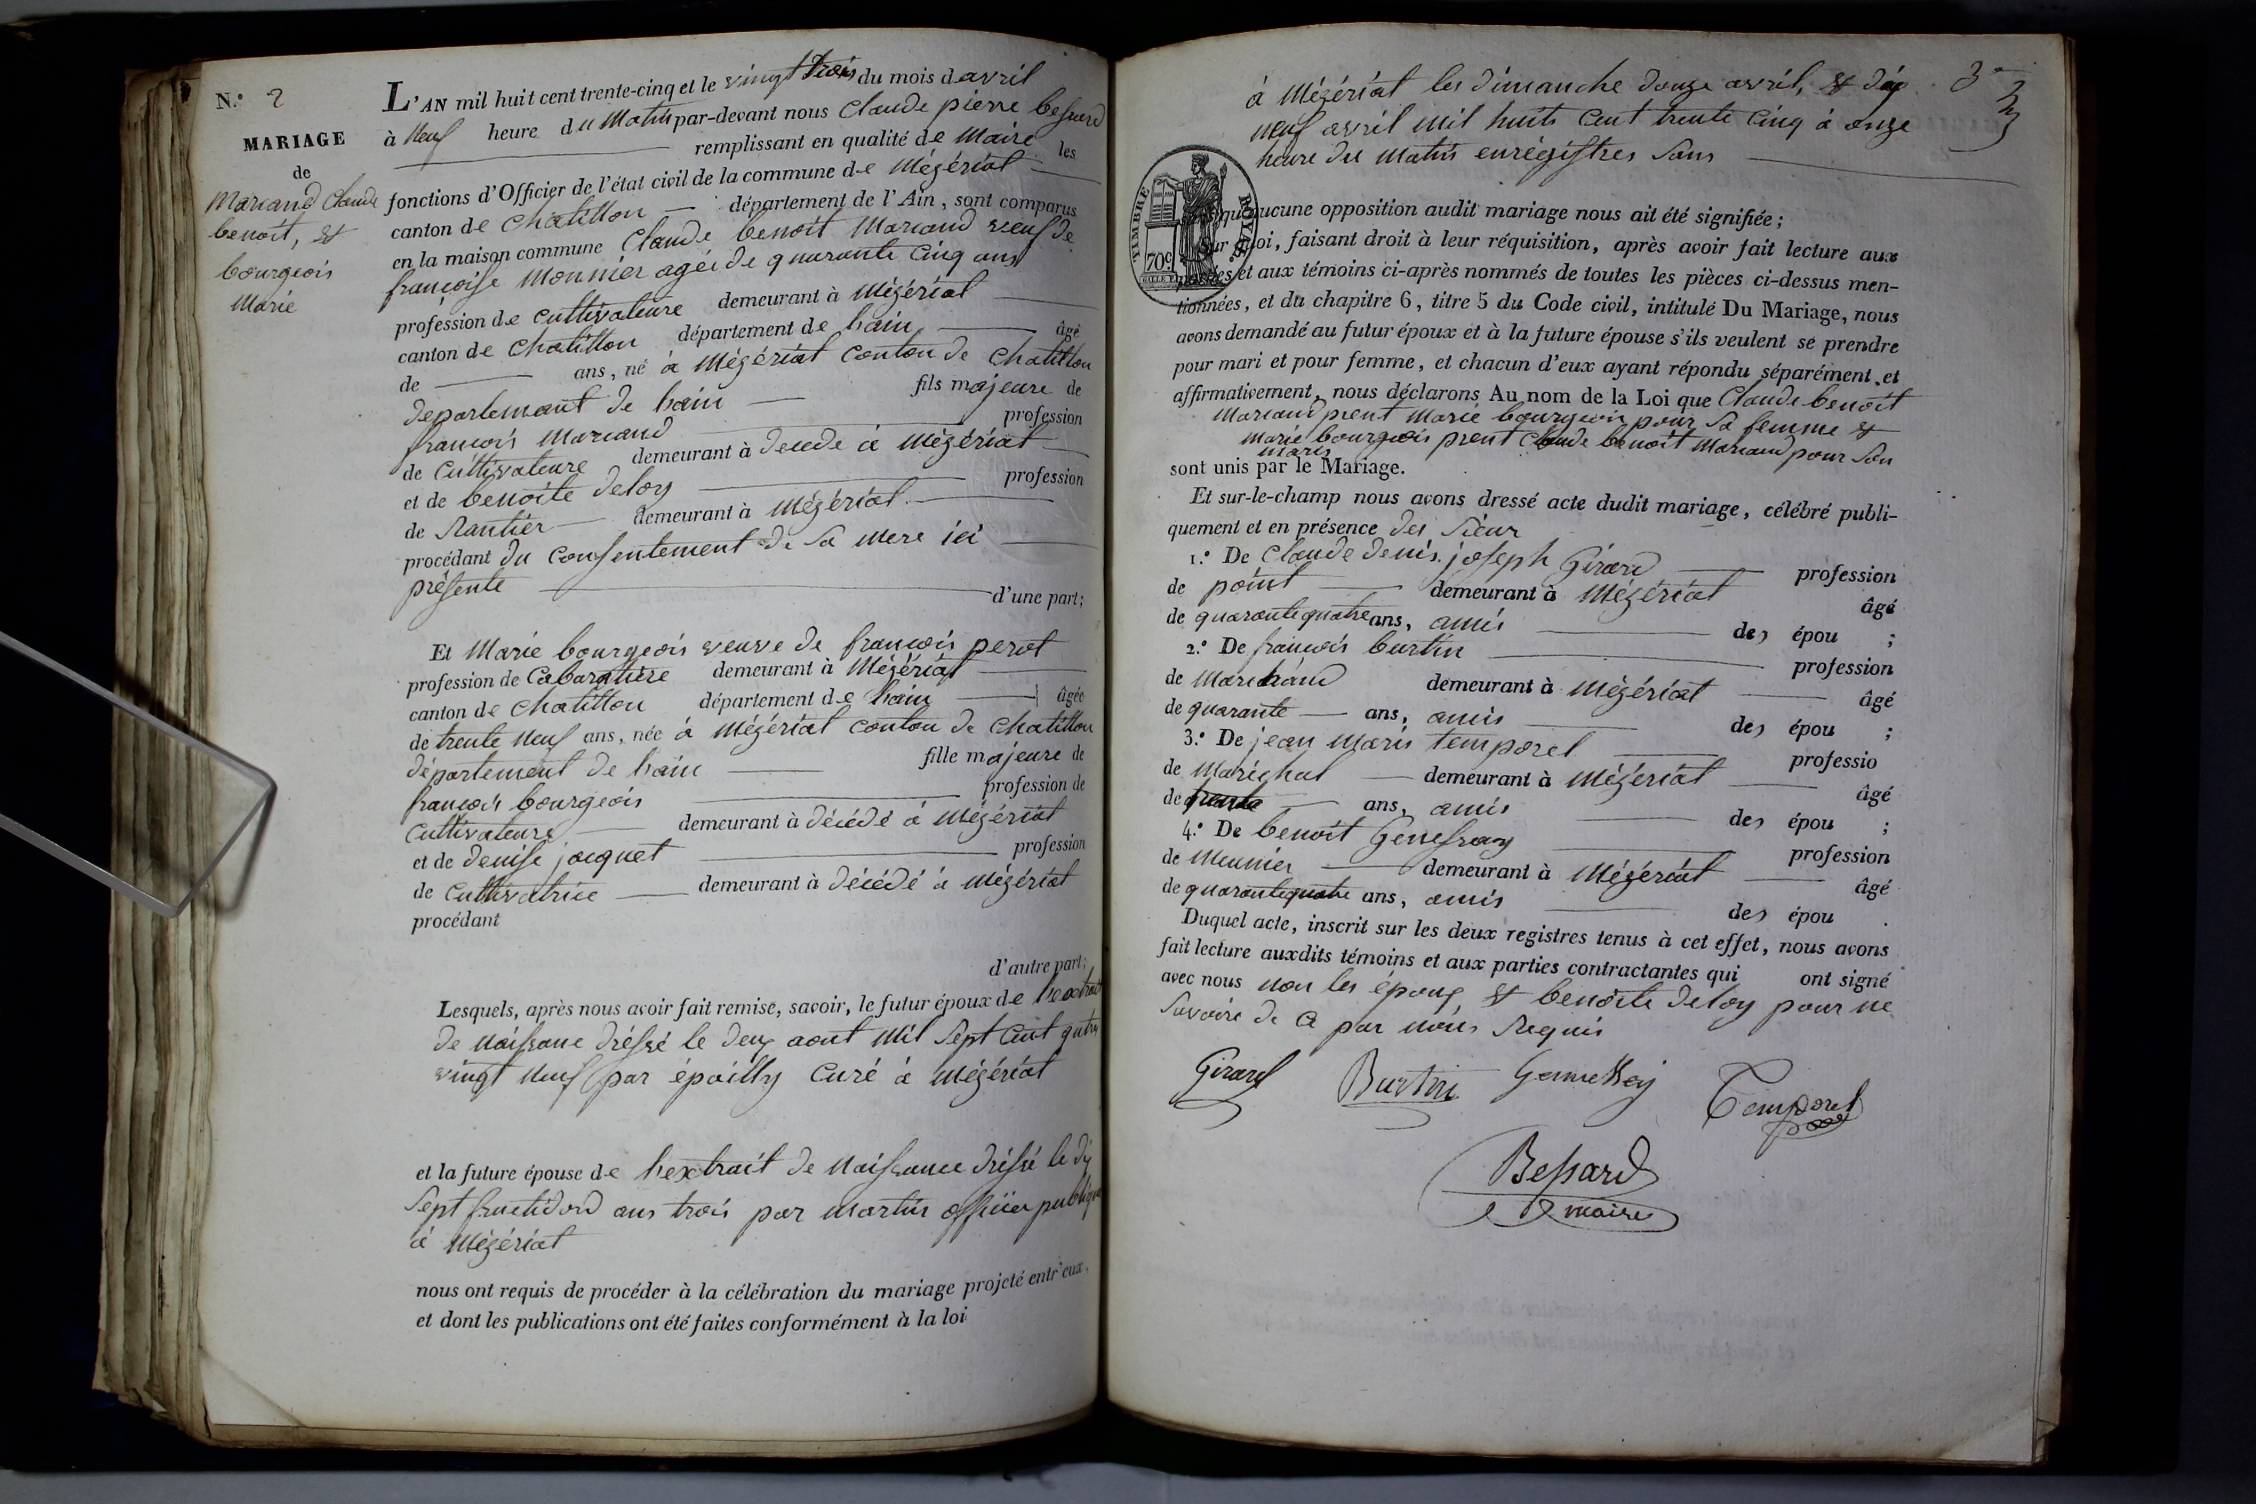 N.° 2
MARIAGE
de
Marand Claude
benoit, &
bourgeois
Marie
L'AN mil huit cent trente-cinq et le vingt trois du mois d avril
à neuf heure du Matin par-devant nous Claude pierre bessard
remplissant en qualité de Maire les
fonctions d'Officier de l'état civil de la commune de Mézériat
canton de Chatillon département de l'Ain, sont comparus
en la maison commune Claude benoit Marand veuf de
françoise Monnier agée de quarante cinq ans
profession de cultivateure demeurant à Mézériat
canton de Chatillon département de hain âgé
de ans, né à Mézériat conton de Chatillon
departement de hain fils majeure de
françois Marand profession
de Cultivateure demeurant à décéde à Mézériat
et de benoite deloy profession
de Rantier demeurant à Mézériat
procédant du consentement de sa mere ici
présente d'une part;
Et Marie bourgeois veuve de françois perot
profession de Cabaratière demeurant à Mézériat
canton de Chatillon département de hain âgée
de trente neuf ans, née à Mézériat conton de Chatillon
département de hain fille majeure de
françois bourgeois profession de
cultivateure demeurant à décédé à Mézériat
et de denise jacquet profession
de cultivatrice demeurant à décédé à Mézériat
procédant
d'autre part;
Lesquels, après nous avoir fait remise, savoir, le futur époux de hextrait
de naissane dréssé le deux aout mil sept cent quatre
vingt neuf par épailly Curé à Mézériat
et la future épouse de hextrait de naissance dréssé le dix
sept fructidord ans trois par Martin officier publique
à Mézériat
nous ont requis de procéder à la célébration du mariage projeté entr'eux,
et dont les publications ont été faites conformément à la loi
3
à Mézériat les dimanche douze avril, & dix
neuf avril mil huits cent trente cinq à onze
heure du Matin enrégistres sans
TIMBRE ROYAL
70c
qu'aucune opposition audit mariage nous ait été signifiée;
Sur quoi, faisant droit à leur réquisition, après avoir fait lecture aux
parties et aux témoins ci-après nommés de toutes les pièces ci-dessus men-
tionnées, et du chapitre 6, titre 5 du Code civil, intitulé Du Mariage, nous
avons demandé au futur époux et à la future épouse s'ils veulent se prendre
pour mari et pour femme, et chacun d'eux ayant répondu séparément et
affirmativement, nous déclarons Au nom de la Loi que Claude benoit
Marand prent Marie bourgeois pour sa femme &
Marie bourgeois prent Claude benoit Marand pour son
maris
sont unis par le Mariage.
Et sur-le-champ nous avons dressé acte dudit mariage, célébré publi-
quement et en présence des sieur
1.° De Claude denis joseph Girard profession
de point demeurant à Mézériat âgé
de quarante quatre ans, amis des épou ;
2.° De françois burtin profession
de Marchand demeurant à Mézériat âgé
de quarante ans, amis des épou ;
3.° De jean Maris temporel professio
de Maréchal demeurant à Mézériat âgé
de trente ans, amis des épou ;
4.° De benoit Genessay profession
de Meunier demeurant à Mézériat âgé
de quarante quatre ans, amis des épou .
Duquel acte, inscrit sur les deux registres tenus à cet effet, nous avons
fait lecture auxdits témoins et aux parties contractantes qui ont signé
avec nous non les époux, & benoite deloy pour ne
savoire de ce par nous Requis
Girard Burtin Temporel
Bessard
maire